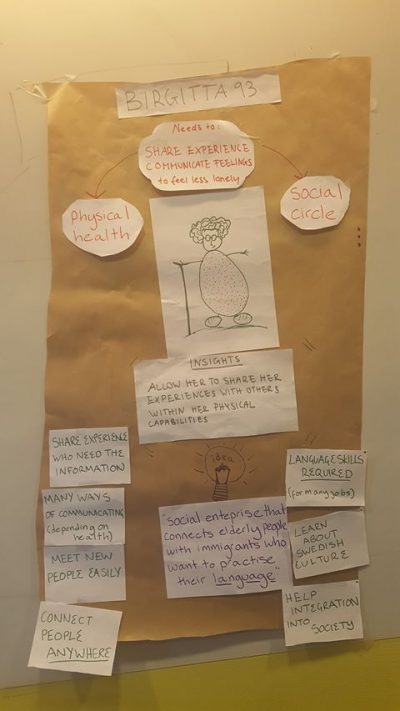 BIRGITTA 93
Needs to:
SHARE EXPERIENCE
COMMUNICATE FEELINGS
to feel less lonely
Physical
health
Social
circle
INSIGHTS
ALLOW HER TO SHARE HER
EXPERIENCES WITH OTHERS
WITHIN HER PHYSICAL
CAPABILITIES
idea
"Social enteprise that
connects elderly people
with immigrants who
want to practise
their language"
SHARE EXPERIENCE
WHO NEED THE
INFORMATION
MANY WAYS
OF COMMUNICATING
(depending on
health)
MEET NEW
PEOPLE EASILY
CONNECT
PEOPLE
ANYWHERE
LANGUAGE SKILLS
REQUIRED
(for many jobs)
LEARN
ABOUT
SWEDISH
CULTURE
HELP
INTEGRATION
INTO
SOCIETY